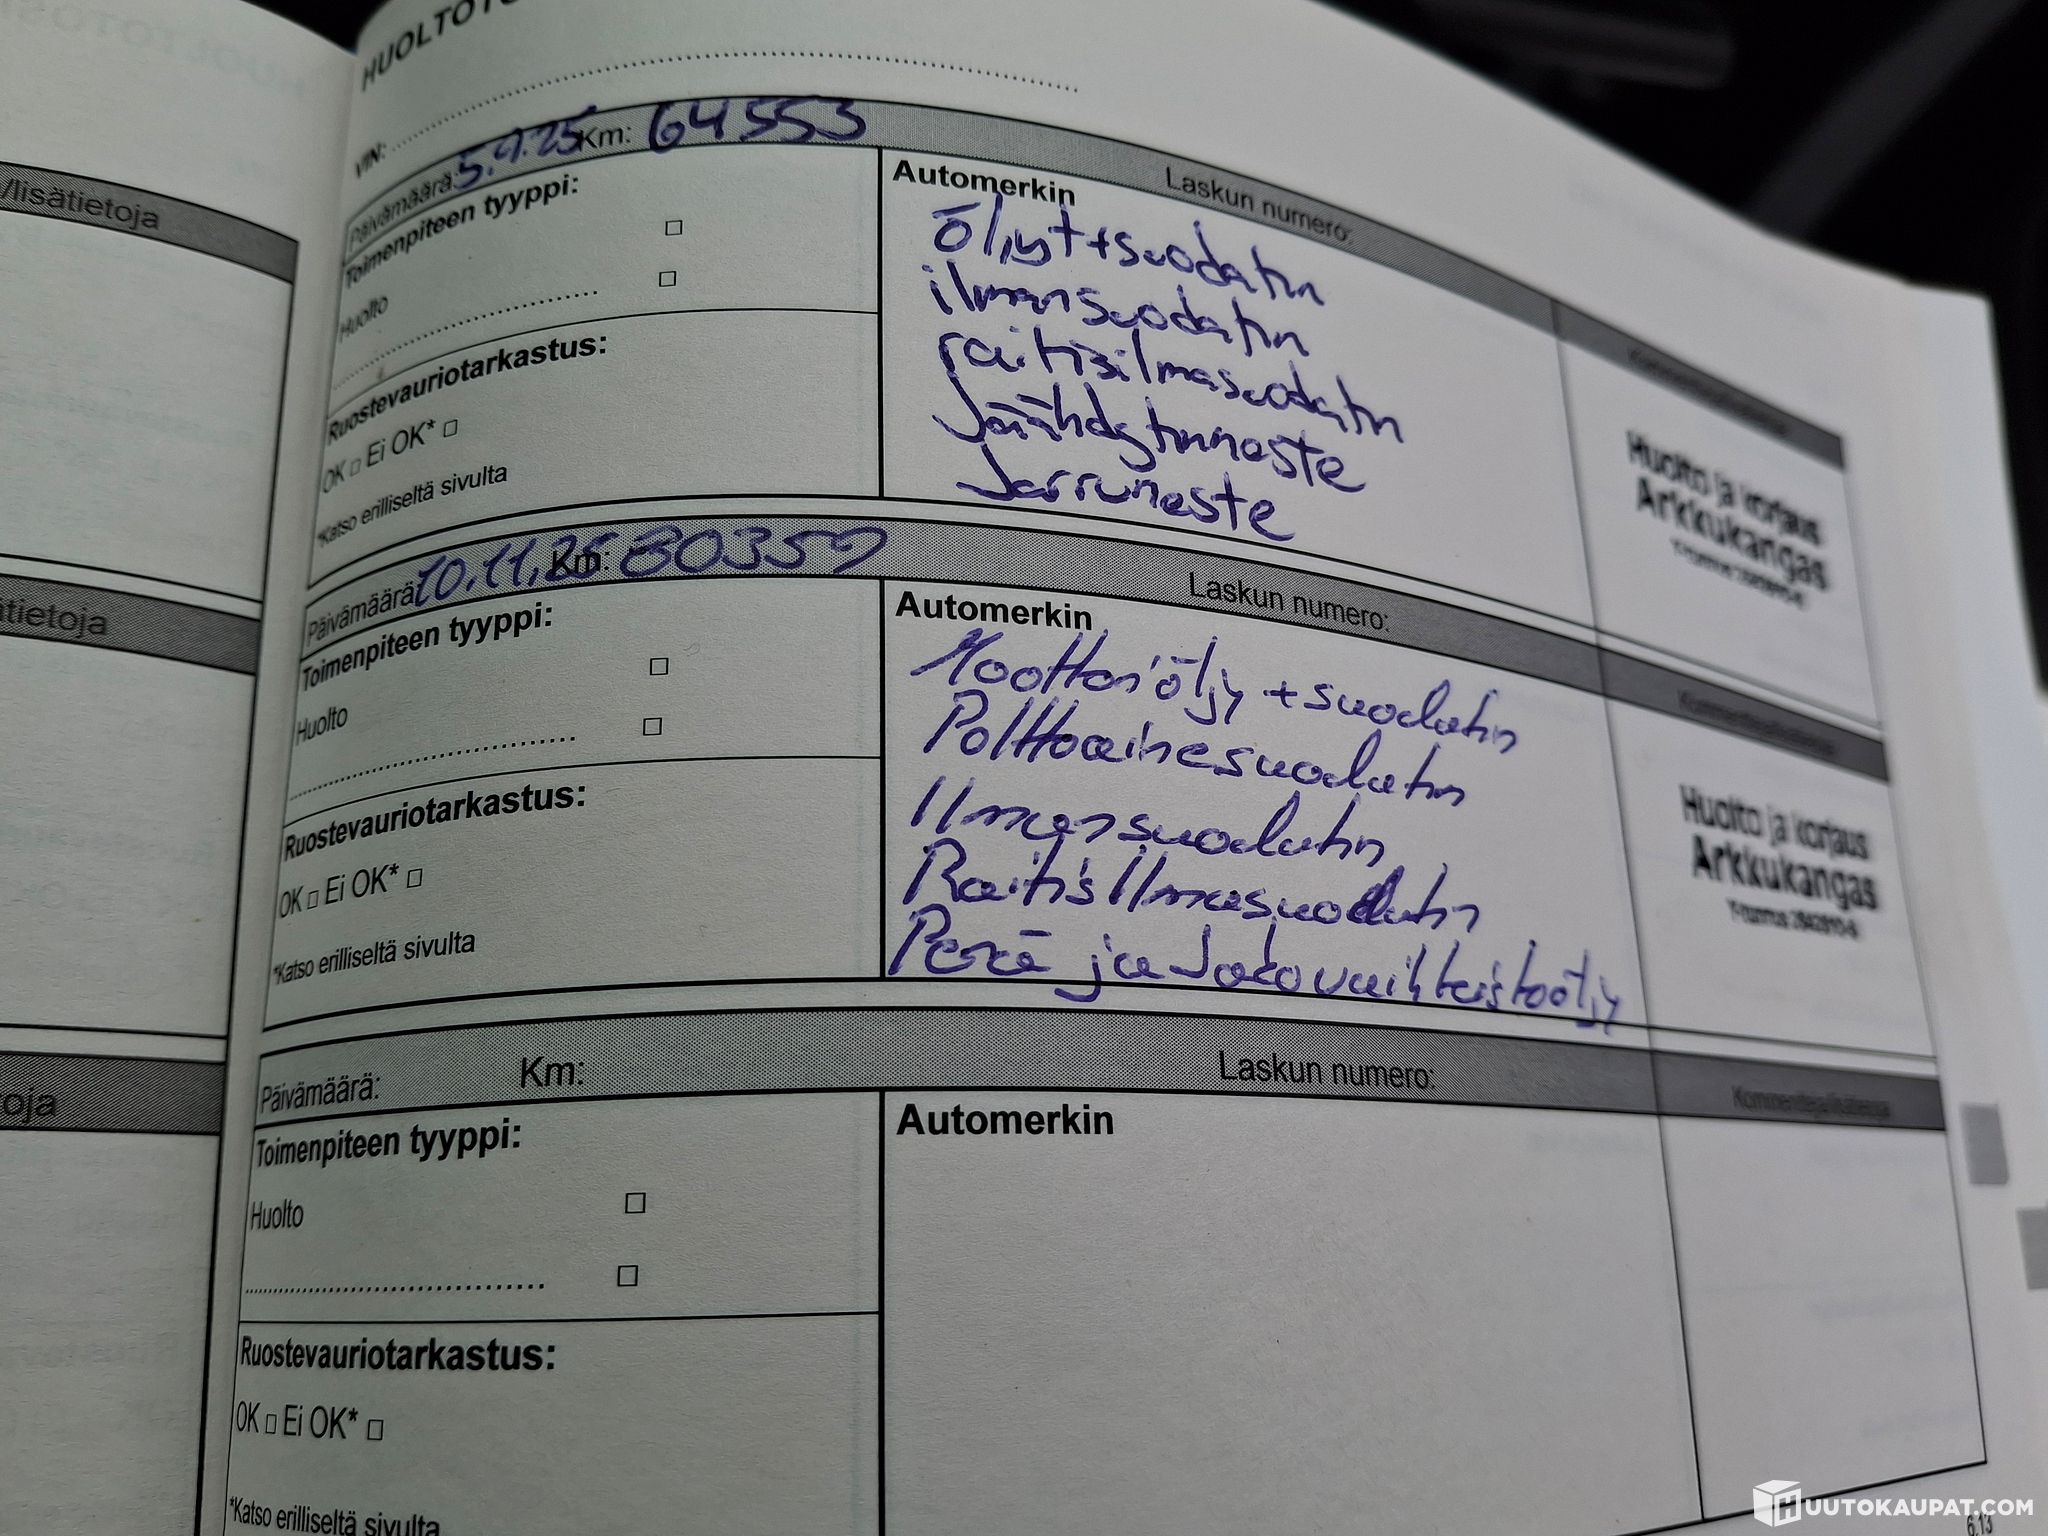 HUOLTOTO
VIN:
Päivämäärä: 5.9.25 Km: 64553
Laskun numero:
Toimenpiteen tyyppi:
Huolto
Ruostevauriotarkastus:
OK □ Ei OK* □
*Katso erilliseltä sivulta
Automerkin
Öljyt+suodatin
ilmansuodatin
raitisilmasuodatin
Jäähdytinneste
Jarruneste
Huolto ja korjaus
Arkkukangas
Päivämäärä: 10.11.25 Km: 80359
Laskun numero:
Toimenpiteen tyyppi:
Huolto
Ruostevauriotarkastus:
OK □ Ei OK* □
*Katso erilliseltä sivulta
Automerkin
Moottoriöljy +suodatin
Polttoainesuodatin
Ilmansuodatin
Raitis Ilmasuodatin
Perä ja Jakovaihteistoöljy
Huolto ja korjaus
Arkkukangas
Päivämäärä: Km:
Laskun numero:
Toimenpiteen tyyppi:
Huolto
Ruostevauriotarkastus:
OK □ Ei OK* □
*Katso erilliseltä sivulta
Automerkin
/lisätietoja
ätietoja
oja
6.13
HUUTOKAUPAT.COM